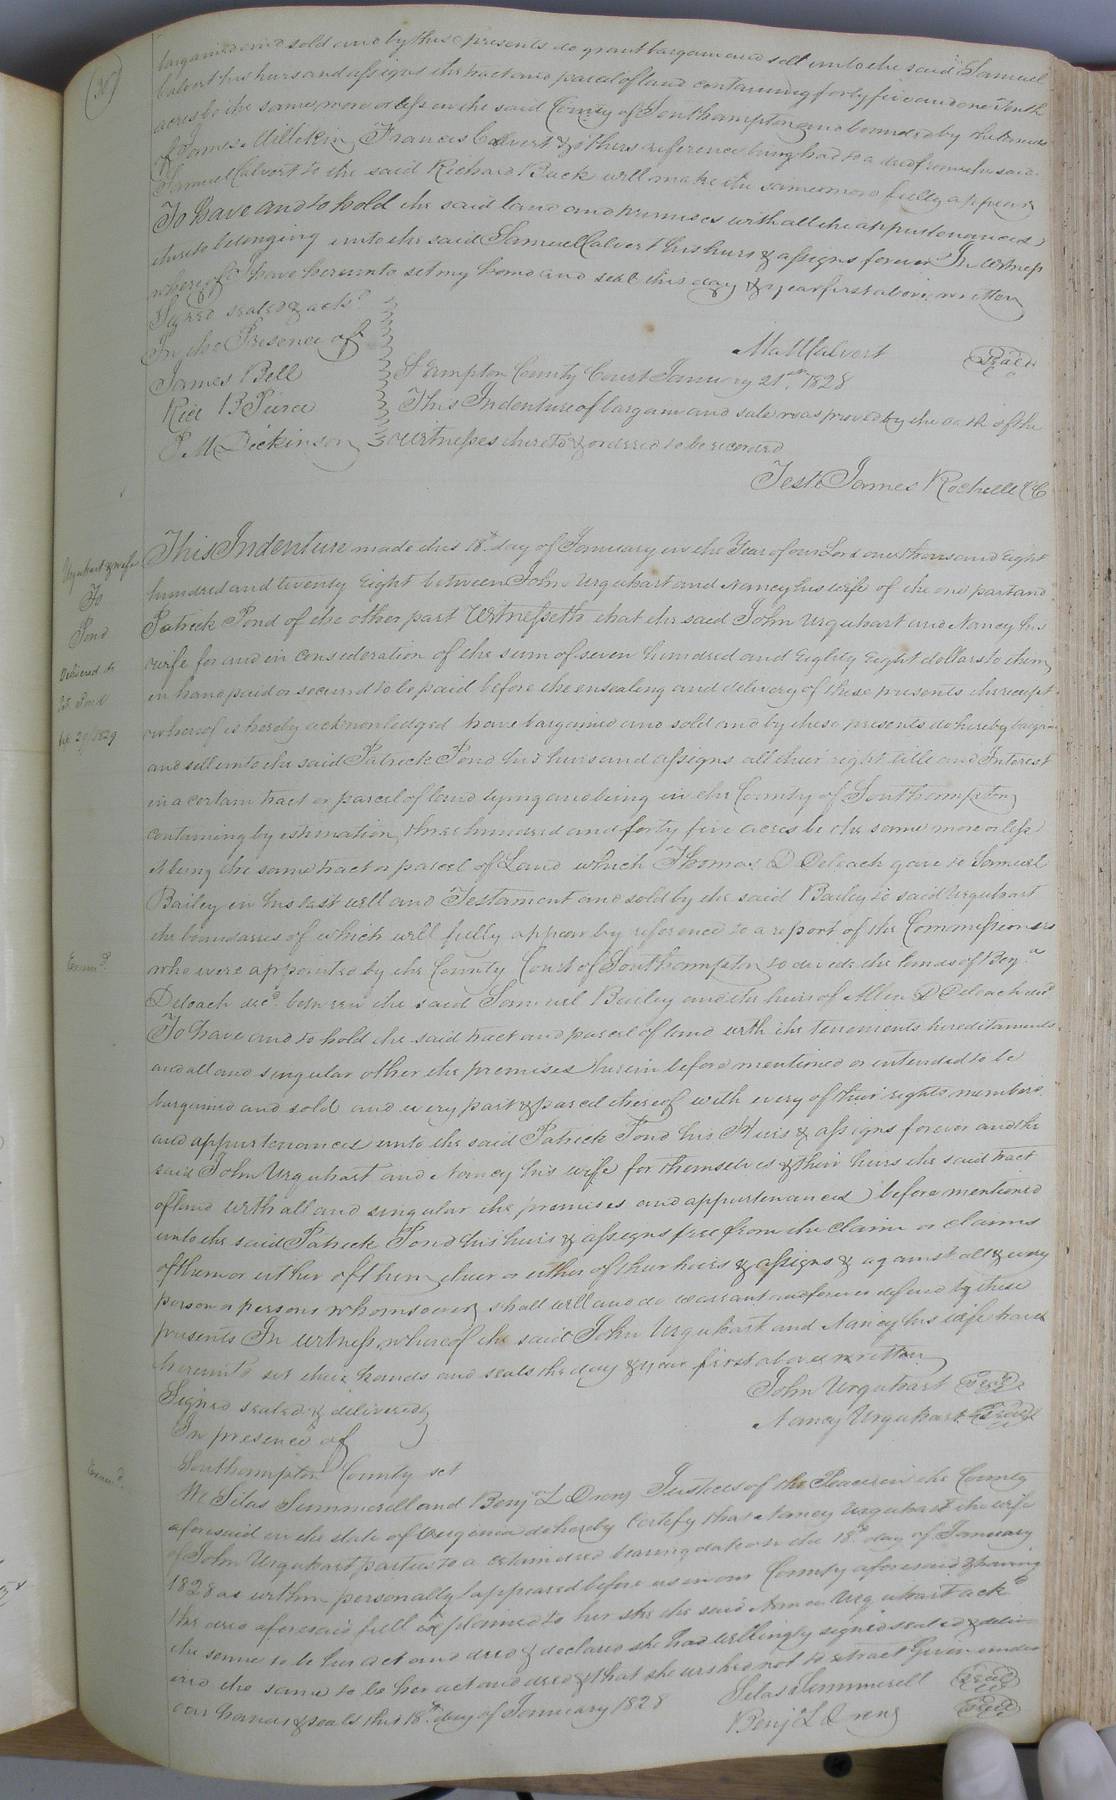 (30)
bargained and sold and by these presents do grant bargain and sell unto the said Samuel
Calvert his heirs and assigns the tract and parcel of land containing forty five and one tenth
acres be the same more or less in the said County of Southampton and bounded by the lands
of James Millikin, Francis Calvert & others reference being had to a deed from the said
Samuel Calvert to the said Richard Back will make the same more fully appear
To have and to hold the said land and premises with all the appurtenances
thereto belonging unto the said Samuel Calvert his heirs & assigns forever In witness
whereof I have hereunto set my hand and seal this day & year first above written
Signed sealed & ackd
In the Presence of
Calvert Seal
James Bell
S Hampton County Court January 21st 1828
Rice B Pierce
This Indenture of bargain and sale was proved by the oath of the
P. M Dickinson
witnesses thereto & ordered to be recorded
Teste James Rochelle CC
This Indenture made this 18th day of January in the Year of our Lord one thousand Eight
Urquhart & wife
To
Pond
Delivered to
Pat. Pond
1829
hundred and twenty Eight between John Urquhart and Nancy his wife of the one part and
Patrick Pond of the other part Witnesseth that the said John Urquhart and Nancy his
wife for and in consideration of the sum of seven hundred and Eighty Eight dollars to them
in hand paid or secured to be paid before the ensealing and delivery of these presents the receipt
whereof is hereby acknowledged have bargained and sold and by these presents do hereby bargain
and sell unto the said Patrick Pond his heirs and assigns all their right title and Interest
in a certain tract or parcel of land lying and being in the County of Southampton
containing by estimation three hundred and forty five acres be the same more or less
it being the same tract or parcel of Land which Thomas D Deloach gave to Samuel
Bailey in his last will and Testament and sold by the said Bailey to said Urquhart
the boundaries of which will fully appear by reference to a report of the Commissioners
Examd.
who were appointed by the County Court of Southampton to divide the lands of Benjn
Deloach decd. between the said Samuel Bailey and the heirs of Allen D Deloach decd
To have and to hold the said tract and parcel of land with the tenements hereditaments
and all and singular other the premises herein before mentioned or intended to be
bargained and sold and every part & parcel thereof with every of their rights members
and appurtenances unto the said Patrick Pond his Heirs & assigns forever and the
said John Urquhart and Nancy his wife for themselves & their heirs the said tract
of land with all and singular the premises and appurtenances before mentioned
unto the said Patrick Pond his heirs & assigns free from the claim or claims
of them or either of them their or either of their heirs & assigns & against all & every
person or persons whomsoever shall will and do warrant and forever defend by these
presents In witness whereof the said John Urquhart and Nancy his wife have
hereunto set their hands and seals the day & year first above written
Signed sealed & delivered
John Urquhart Seal
In presence of
Nancy Urquhart Seal
Southampton County sct
Examd.
We Silas Summerell and Benjn L Justices of the Peace in the County
aforesaid in the state of Virginia do hereby certify that Nancy Urquhart the wife
of John Urquhart parties to a certain deed bearing date on the 18th day of January
1828 as within personally appeared before us in our County aforesaid & having
the deed aforesaid full explained to her she the said Nancy Urquhart ackd
the same to be her act and deed & declared she had willingly signed sealed & deliv
ered the same to be her act and deed & that she wished not to retract Given under
our hands & seals this 18th day of January 1828
Silas Summerell Seal
Benj L Seal